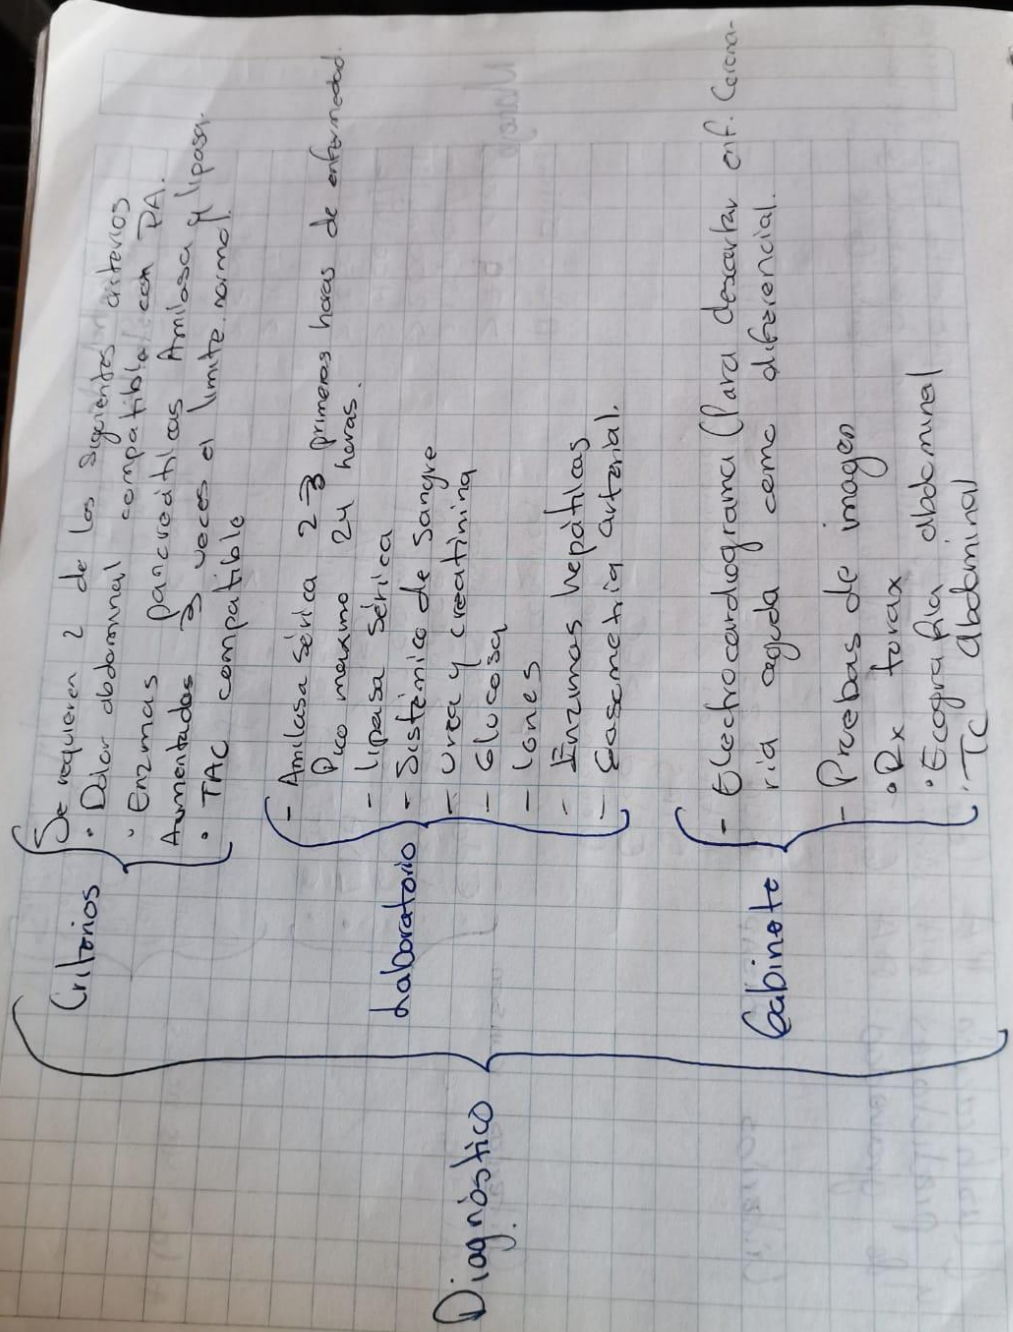 Diagnóstico
Criterios
Se requieren 2 de los siguientes criterios
• Dolor abdominal compatible con PA.
• Enzimas pancreáticas Amilasa y lipasa.
Aumentadas 3 veces el limite normal.
• TAC compatible
Laboratorio
- Amilasa sérica 2-3 primeras horas de enfermedad.
Pico maximo 24 horas.
- lipasa sérica
- Sistémico de sangre
- Urea y creatinina
- Glucosa
- Iones
- Enzimas hepáticas
- Gasometria arterial.
Gabinete
- Electrocardiograma (Para descartar enf. Corona-
ria aguda como diferencial.
- Pruebas de imagen
• Rx torax
• Ecografia abdominal
• TC abdominal